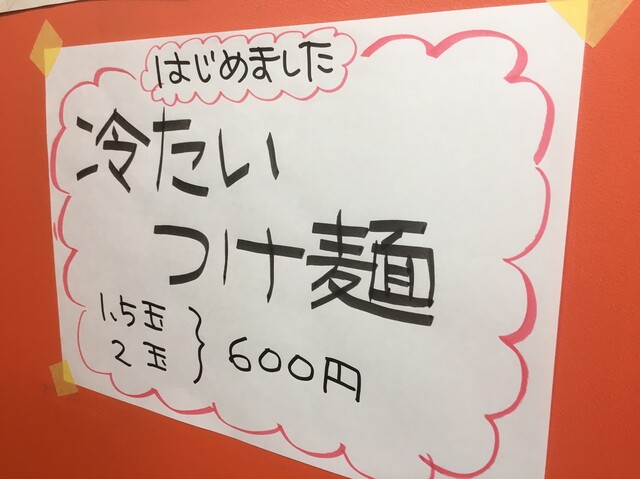 はじめました
冷たい
つけ麺
1.5玉
2玉
600円